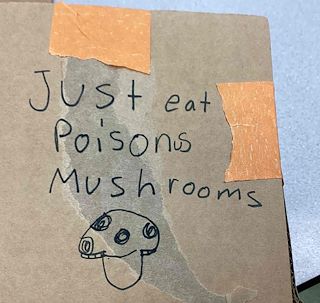 Just eat
Poisons
Mushrooms